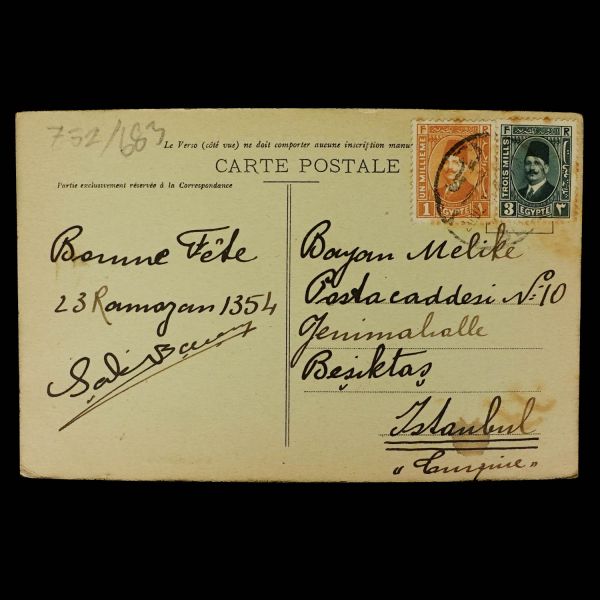 752/683
Le Verso (côté vue) ne doit comporter aucune inscription manu
CARTE POSTALE
Partie exclusivement réservée à la Correspondance
F R
UN MILLIEME
1 EGYPTE ١
F R
TROIS MILLS
3 EGYPTE ٣
Bonne Fête
23 Ramazan 1354
Bayan Melike
Posta caddesi No 10
Jenimahalle
Beşiktaş
Istanbul
„Turquie"